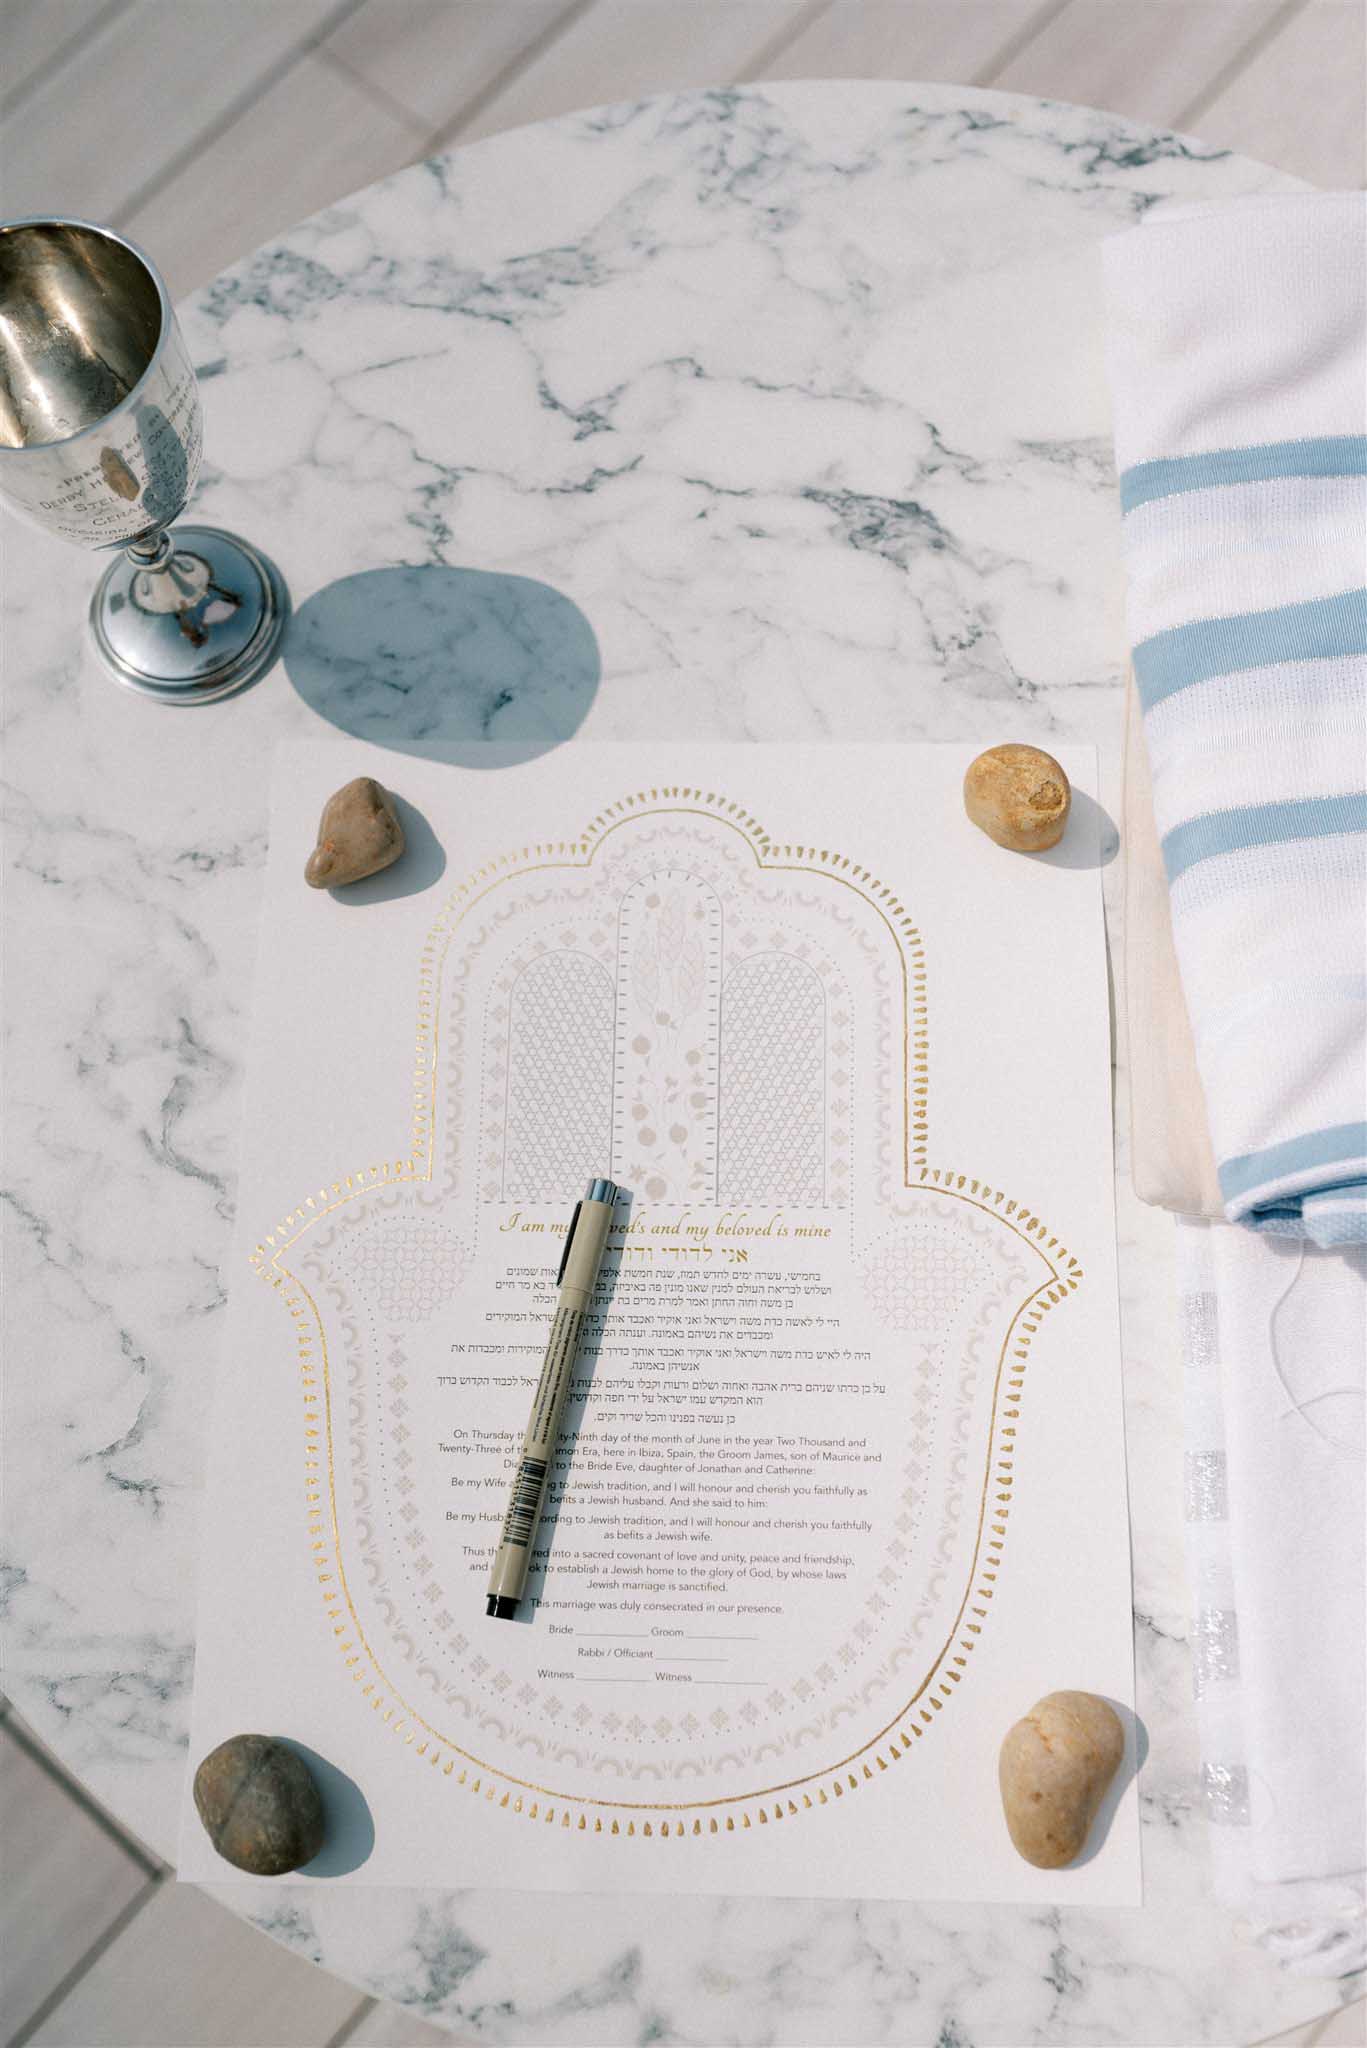 PRESENTED BY THE
DERBY HEBREW CON
STEN
CERA
OCCASION
I am my ved's and my beloved is mine
אני לדודי ודודי
בחמישי, עשרה ימים לחדש תמוז, שנת חמשת אלפי אות שמונים
ושלוש לבריאת העולם למנין שאנו מונין פה באיביזה, במ ד בא מר חיים
בן משה וחוה החתן ואמר למרת מרים בת יונתן הכלה
היי לי לאשה כדת משה וישראל ואני אוקיר ואכבד אותך כדר שראל המוקירים
ומכבדים את נשיהם באמונה. וענתה הכלה
היה לי לאיש כדת משה וישראל ואני אוקיר ואכבד אותך כדרך בנות י המוקירות ומכבדות את
אנשיהן באמונה.
על כן כרתו שניהם ברית אהבה ואחוה ושלום ורעות וקבלו עליהם לבנות ראל לכבוד הקדוש ברוך
הוא המקדש עמו ישראל על ידי חפה וקדושין.
כן נעשה בפנינו והכל שריר וקים.
On Thursday th ty-Ninth day of the month of June in the year Two Thousand and
Twenty-Three of t mmon Era, here in Ibiza, Spain, the Groom James, son of Maurice and
Dia to the Bride Eve, daughter of Jonathan and Catherine:
Be my Wife a ng to Jewish tradition, and I will honour and cherish you faithfully as
befits a Jewish husband. And she said to him:
Be my Husb ording to Jewish tradition, and I will honour and cherish you faithfully
as befits a Jewish wife.
Thus th red into a sacred covenant of love and unity, peace and friendship,
and ok to establish a Jewish home to the glory of God, by whose laws
Jewish marriage is sanctified.
This marriage was duly consecrated in our presence.
Bride ____________ Groom ____________
Rabbi / Officiant ____________
Witness ____________ Witness ____________